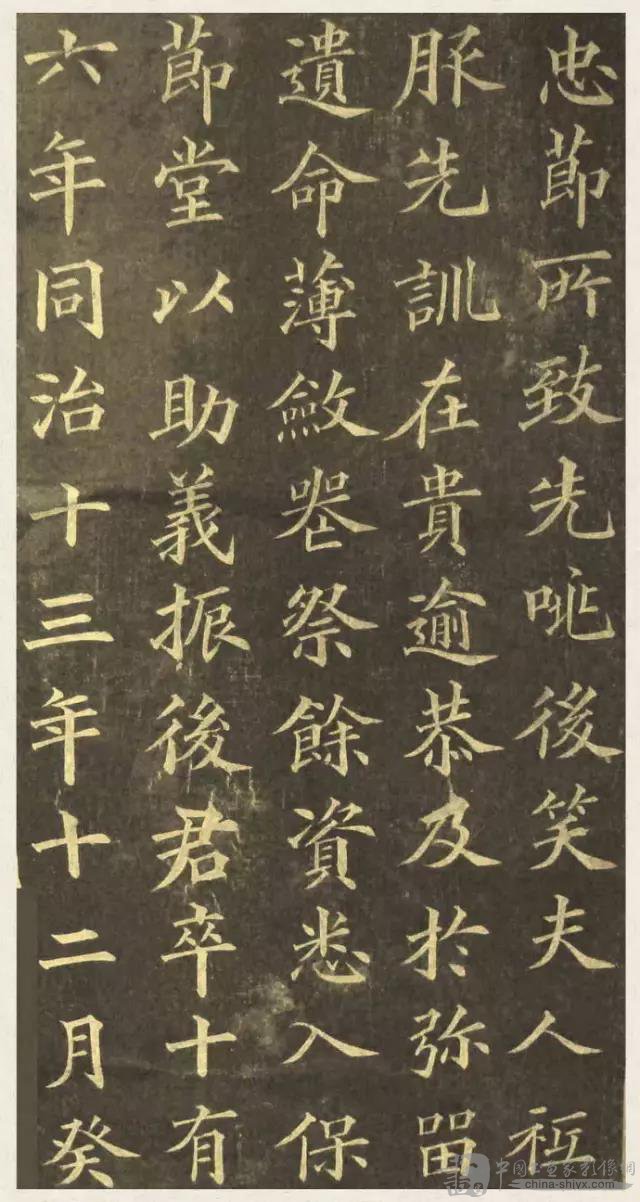 忠節所致先咷後笑夫人祗
服先訓在貴逾恭及於弥留
遺命薄斂喪祭餘資悉入保
節堂以助義振後君卒十有
六年同治十三年十二月癸
中国书画家影像網
china-shyx.com